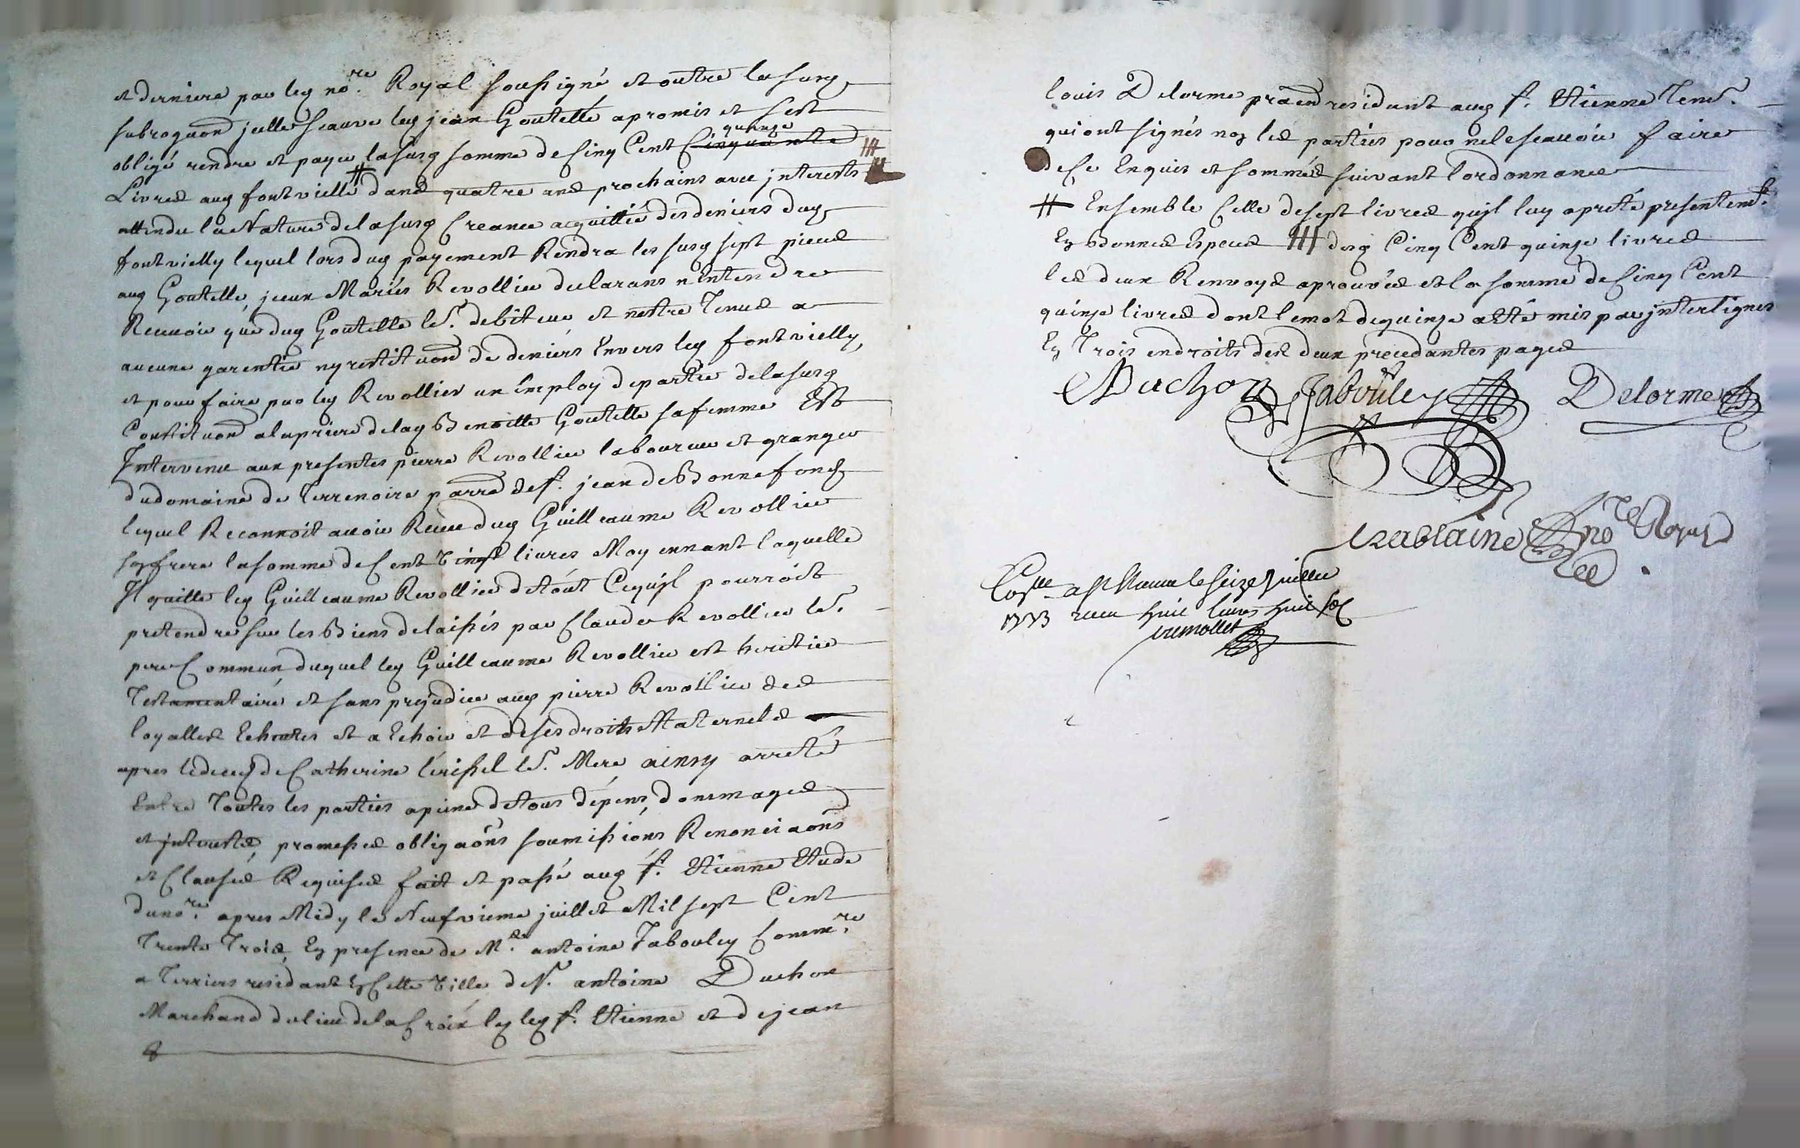 et derniere par ley no.re Royal soussigné et outre la susd.
subroguaon jcelle sauve ley jean Goutelle a promis et s'est
quinze
obligé rendre et payer la susd somme de Cinq Cent Cinquante
Livres aud fontvielle # dans quatre ans prochains avec jnterests
attendu la Nature de la susd Creance acquittée des deniers dud
fontvielly lequel lors dud payement Rendra les susd sept pieces
aud Goutelle, jceux Mariés Revollier declarans n'Entendre
Recevoir que dud Goutelle le.r debiteur et n'estre Tenus a
aucune garentie ny restituaon de deniers Envers ley fontvielly,
et pour faire par ley Revollier un Employ de partie de la susd
Constituaon a la priere de lad Benoitte Goutelle sa femme Est
Intervenu aux presentes pierre Revollier laboureur et granger
du domaine de Terrenoire parre de St. jean de Bonnefond
lequel Reconnoit avoir Receu dud Guilleaume Revollier
son frere la somme de Cent vingt livres Moyennant laquelle
Il quitte ley Guilleaume Revollier de tout Ce qu'jl pourroit
pretendre sur les Biens delaissés par Claude Revollier le.r
pere Commun duquel ley Guilleaume Revollier est heritier
Testamentaire et sans prejudice aud pierre Revollier des
loyalles Echeutes et a Echoir et de ses droits Maternels
apres le deceds de Catherine le.r Mere ainsy arresté
Entre Toutes les parties a peine de tous dépens, dommages
et jnterests, promesses obligaons soumissions Renonciaons
et Clauses Requises fait et passé aud St. Etienne Etude
du no.re apres Midy le Neufvieme juillet Mil sept Cent
Trente Trois, En presence de M.e antoine Tabouley Comm.re
a Terriers residant En Cette ville de S.r antoine Duchon
Marchand du lieu de la Croix ley ley St. Etienne et de jean
louis Delorme praen residant aud St. Etienne Tem.
qui ont signés non les parties pour ne le scavoir faire
de Ce Enquis et sommés suivant l'ordonnance
# Ensemble Celle de sept livres qu'jl luy a preté presentem.t
En Bonnes Especes ### desd Cinq Cent quinze livres
les deux Renvoys aprouvés et la somme de Cinq Cent
quinze livres dont le mot de quinze a Eté mis par jnterlignes
En Trois endroits des deux precedantes pages
Duchon Tabouley Delorme
no.re Royal
Con.lle a St Etienne le seize juillet
1733 receu huit livres huit sols